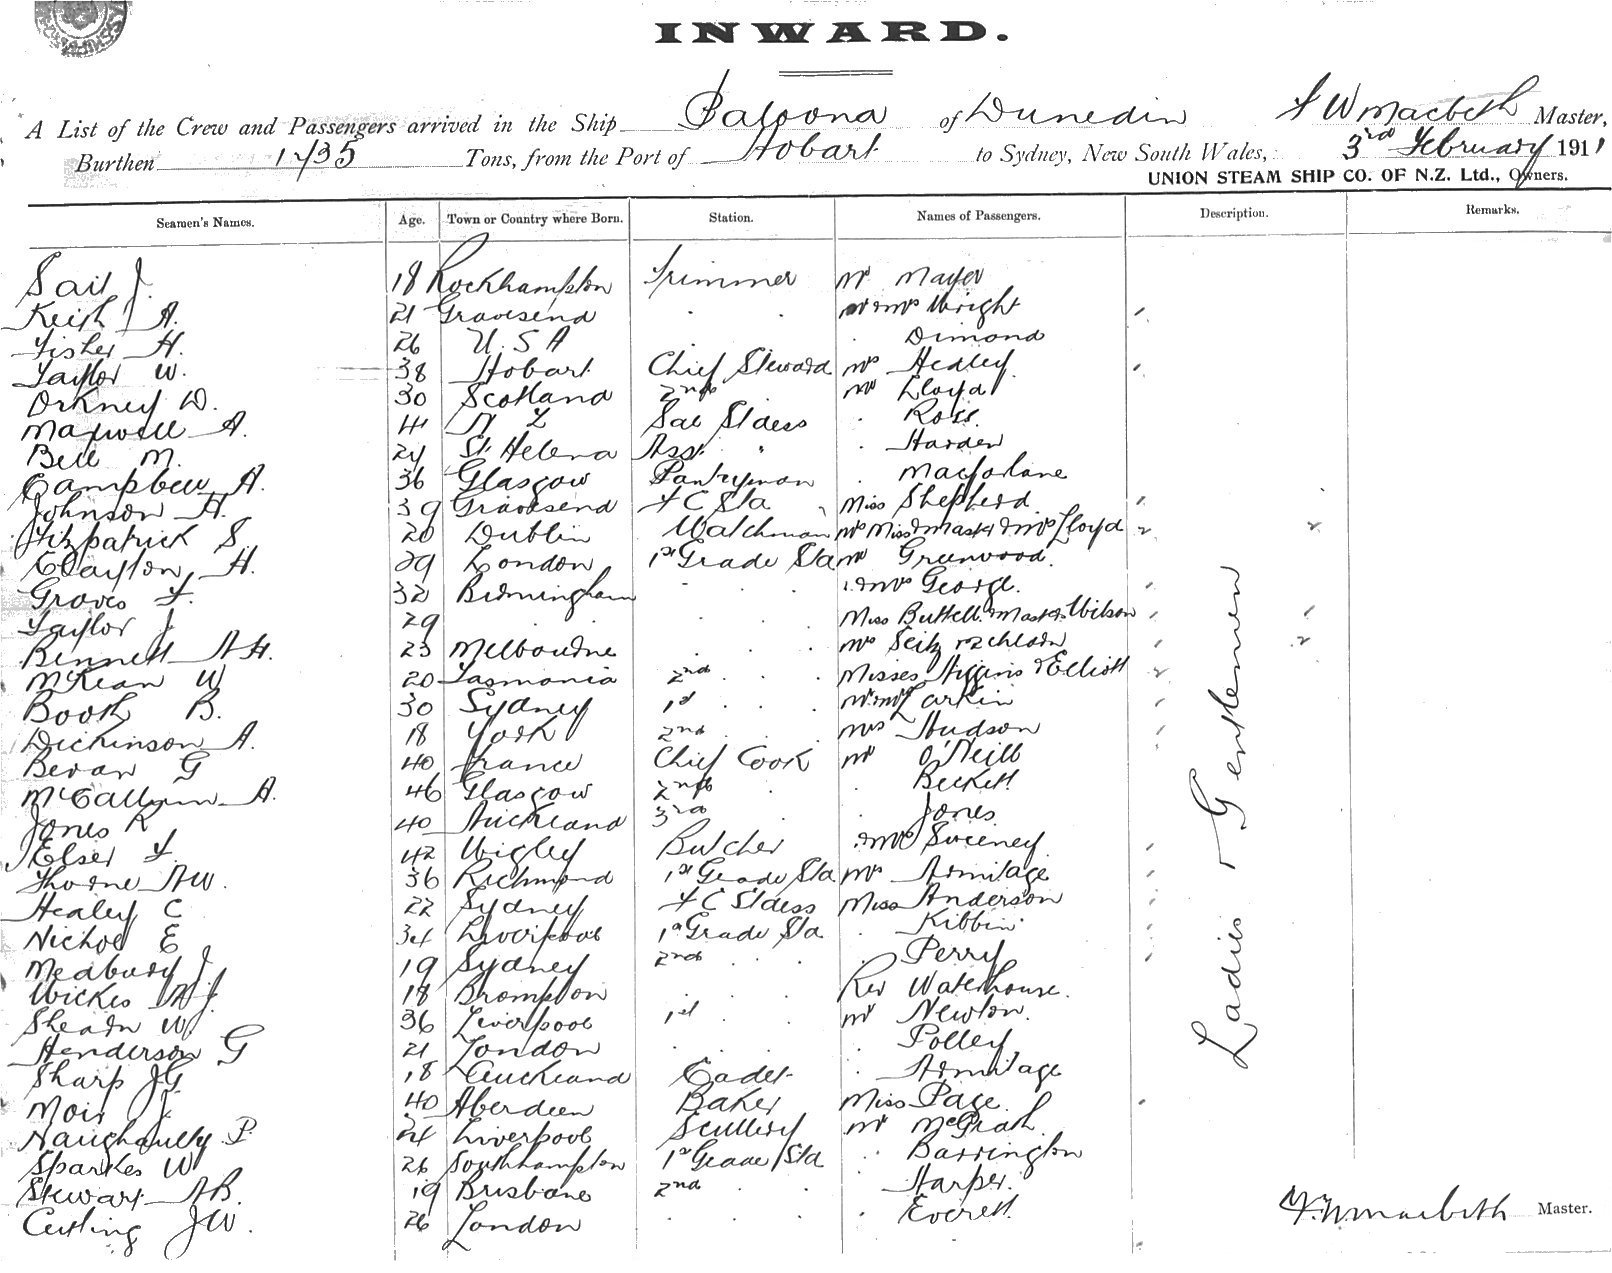 INWARD.
A List of the Crew and Passengers arrived in the Ship Paloona of Dunedin F W Macbeth Master,
Burthen 1435 Tons, from the Port of Hobart to Sydney, New South Wales, 3rd February 1911
UNION STEAM SHIP CO. OF N.Z. Ltd., Owners.
Seamen's Names. Age. Town or Country where Born. Station. Names of Passengers. Description. Remarks.
Sail J. 18 Rockhampton Trimmer Mr Mayer
Keith J A. 21 Gravesend . . Mr & Mrs Wright
Fisher H. 26 U.S A . Dimond
Taylor W. 38 Hobart Chief Steward Mrs Hedley
Orkney D. 30 Scotland 2nd . Mr Lloyd
Maxwell A. 41 N Z Sal Stdess . Ross
Bell M. 24 St. Helena Asst " . Harden
Campbell A. 36 Glasgow Pantryman . Macfarlane
Johnson H. 39 Gravesend F C Sta Miss Shepherd
Fitzpatrick S 20 Dublin Watchman Mrs Miss & Mast & Mrs Lloyd
Clayton H. 29 London 1st Grade Sta Mr Greenwood.
Groves F. 32 Birmingham . . . & Mrs George.
Taylor J 29 . . . . Miss Buttell & Mastr Wilson
Bennett A H. 23 Melbourne . . . Mrs Seitz & 2 children
McKean W 20 Tasmania 2nd . . . Misses Higgins & Elliott
Booth B. 30 Sydney 1st . . . Mr & Mrs Larkin
Dickinson A. 18 York 2nd . . . Mrs Hudson
Bevan G 40 France Chief Cook Mr O'Neill
McCallum A. 46 Glasgow 2nd . . Beckett
Jones R 40 Auckland 3rd . . Jones
Elser F. 42 Wigley Butcher . & Mrs Sweeney
Thorne A W. 36 Richmond 1st Grade Sta Mrs Armitage
Healey C 22 Sydney F C Stdess Miss Anderson
Nichol E 34 Liverpool 1st Grade Sta . Kibbin
Medbury J 19 Sydney 2nd . . . Perry
Wickes A J. 18 Brompton . . . Rev Waterhouse.
Shearn W. 36 Liverpool 1st . . Mr Newton.
Henderson G 21 London . . . . Polley
Sharp J G. 18 Auckland Cadet . Armitage
Moir J. 40 Aberdeen Baker Miss Page
Naughaulty P. 24 Liverpool Scullery Mr McGrath
Sparkes W 26 Southhampton 1st Grade Sta . Barrington
Stewart A B. 19 Brisbane 2nd . . Harper.
Cutling J W. 26 London . . . Everett
Ladies & Gentlemen
F. W. Macbeth Master.